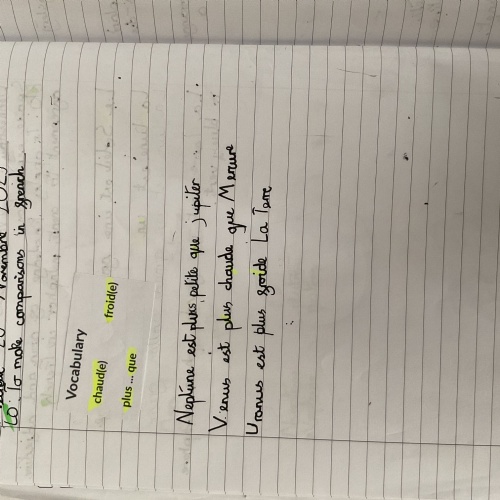 Novembre 2025
LO: To make comparisons in french
Vocabulary
chaud(e) froid(e)
plus ... que
Neptune est plus petite que jupiter
Venus est plus chaude que Mercure
Uranus est plus froide La Terre